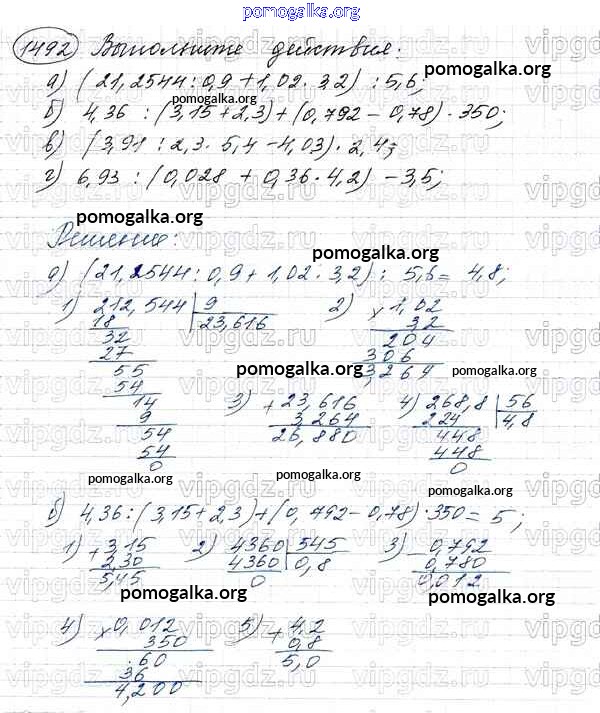 pomogalka.org
1492 Выполните действия:
а) (21,2544 : 0,9 + 1,02 · 3,2) : 5,6;
pomogalka.org
б) 4,36 : (3,15 + 2,3) + (0,792 - 0,78) · 350;
в) (3,91 : 2,3 · 5,4 - 4,03) · 2,4;
г) 6,93 : (0,028 + 0,36 · 4,2) - 3,5;
pomogalka.org
Решение:
pomogalka.org
а) (21,2544 : 0,9 + 1,02 · 3,2) : 5,6 = 4,8;
1) 212,544 | 9
23,616
18
32
27
55
54
14
9
54
54
0
2) × 1,02
3,2
204
306
3,264
pomogalka.org
3) + 23,616
3,264
26,880
4) 268,8 | 56
4,8
224
448
448
0
pomogalka.org
pomogalka.org
pomogalka.org
б) 4,36 : (3,15 + 2,3) + (0,792 - 0,78) · 350 = 5;
1) + 3,15
2,30
5,45
2) 4360 | 545
0,8
4360
0
3) - 0,792
0,780
0,012
pomogalka.org
pomogalka.org
4) × 0,012
350
60
36
4,200
5) + 4,2
0,8
5,0
pomogalka.org
vipgdz.ru